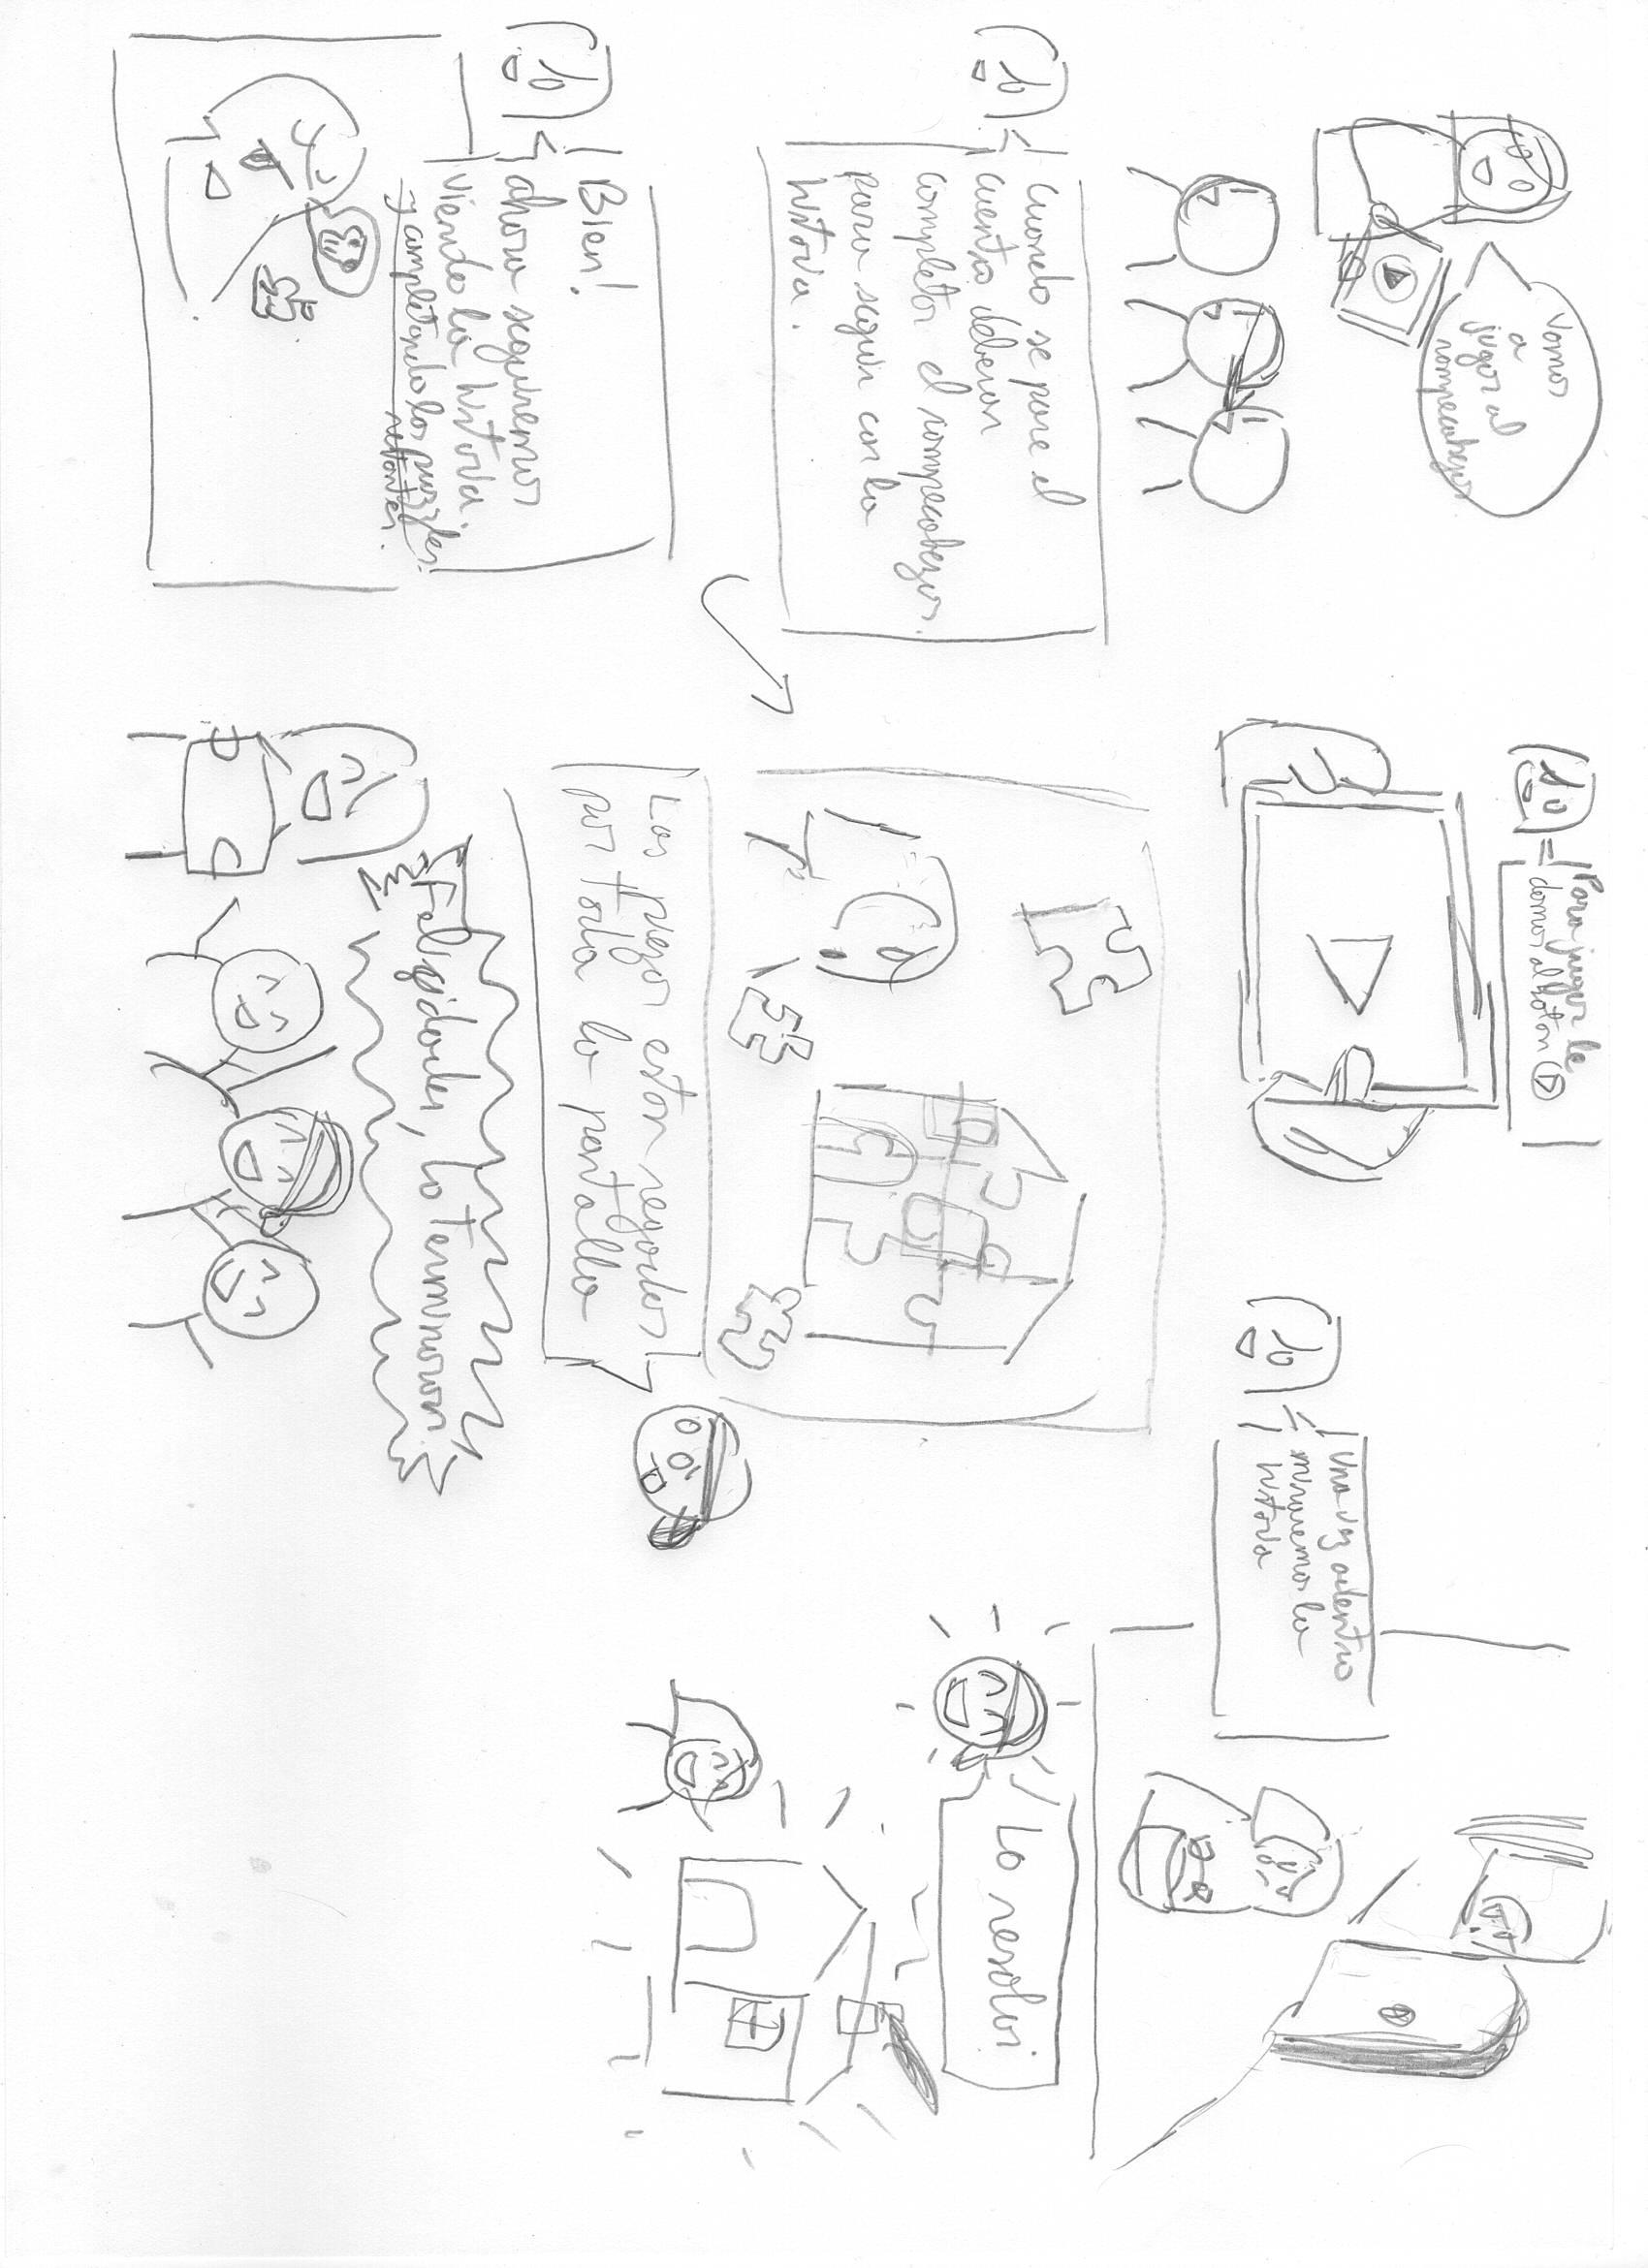 Vamos
a
jugar al
rompecabezas
Para jugar le
damos al boton
Una vez adentro
miraremos la
historia
Cuando se pare el
cuento deberan
completar el rompecabezas
para seguir con la
historia.
Las piezas estan regadas
por toda la pantalla
Lo resolvi
Bien!
ahora seguiremos
viendo la historia.
y completando los puzzles
restantes.
Felicidades, lo terminaron